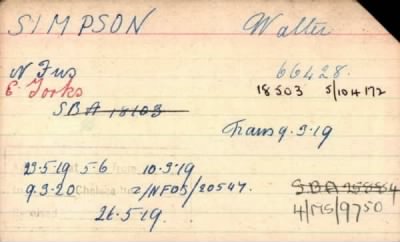 SIMPSON Walter
N Fus 66428.
E. Yorks 18503 5/104172
SBA 18103
Trans 9.3.19
23.5.19 5.6 10.3.19
9.3.20 2/NFOS/20547. SBA 25884
26.5.19. 4/MS/9750